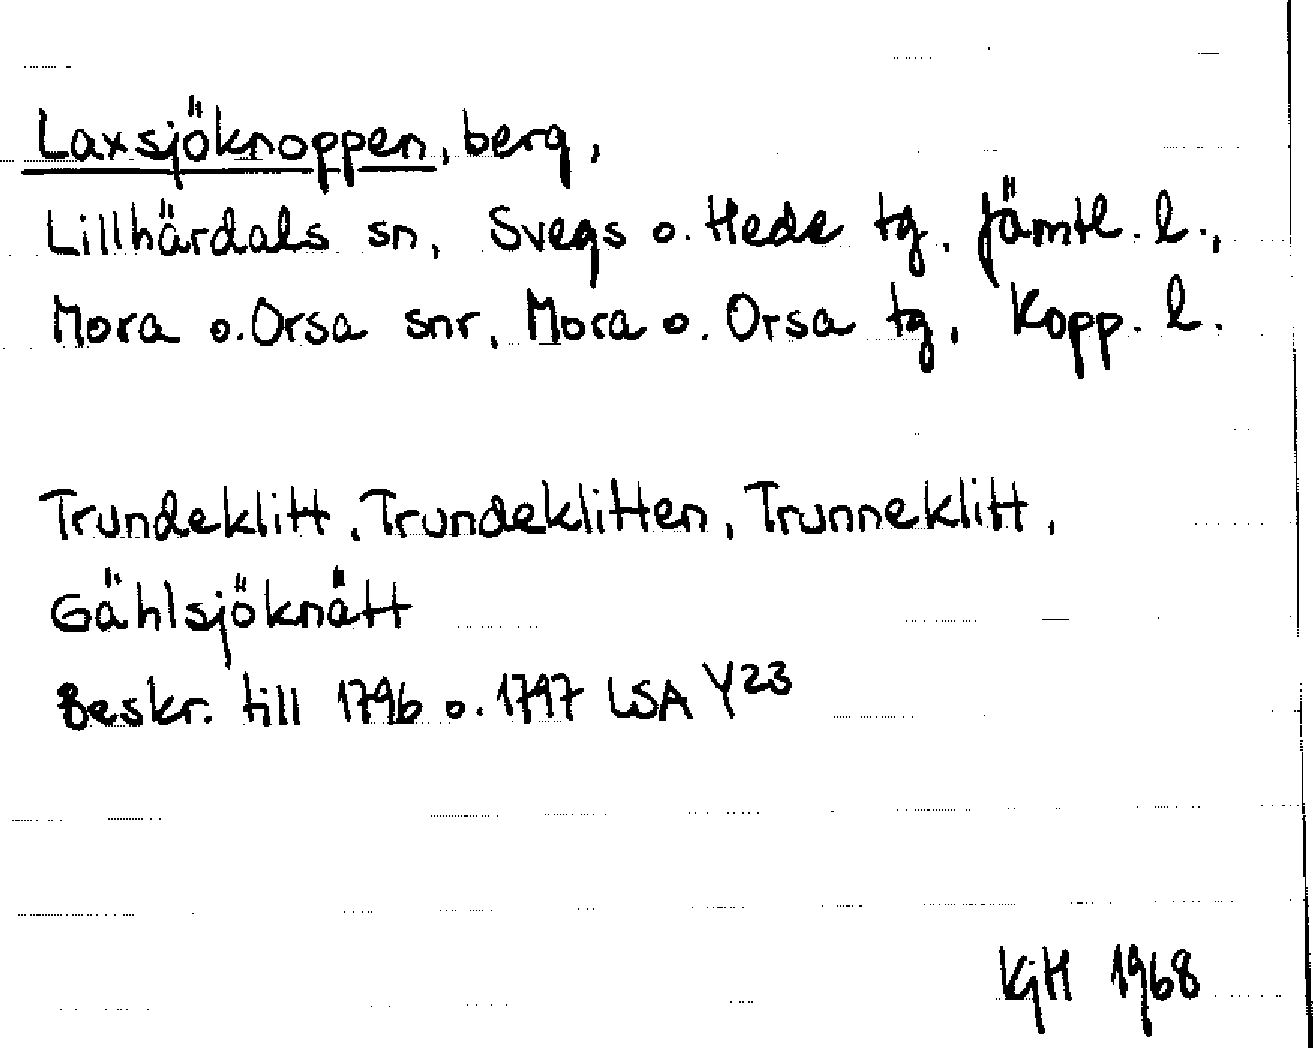 Laxsjöknoppen, berg,
Lillhärdals sn, Svegs o. Hede tg, Jämtl. l.,
Mora o. Orsa snr, Mora o. Orsa tg, Kopp. l.
Trundeklitt, Trundeklitten, Trunneklitt,
Gählsjöknätt
Beskr. till 1796 o. 1797 LSA Y23
KGH 1968